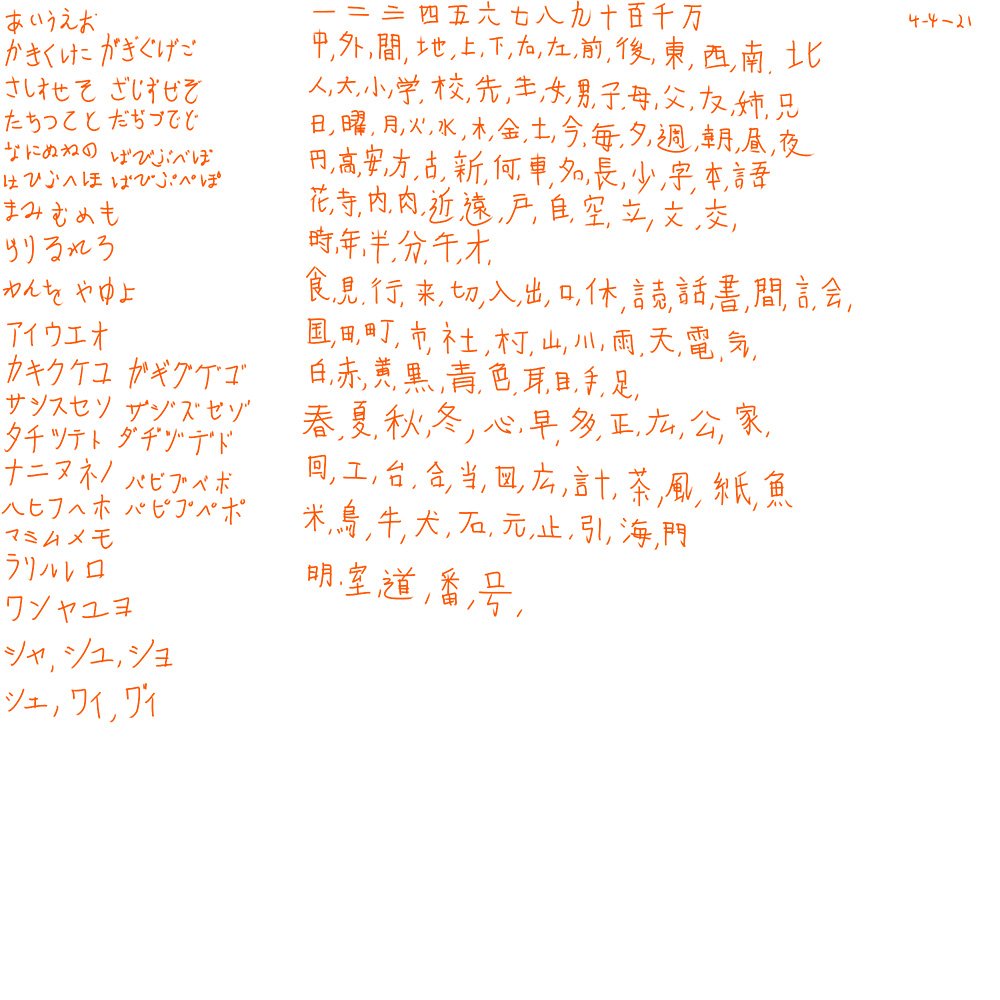 4-4-21
あいうえお
かきくけこ がぎぐげご
さしすせそ ざじずぜぞ
たちつてと だぢづでど
なにぬねの ばびぶべぼ
はひふへほ ぱぴぷぺぽ
まみむめも
らりるれろ
わんを やゆよ
アイウエオ
カキクケコ ガギグゲゴ
サシスセソ ザジズゼゾ
タチツテト ダヂヅデド
ナニヌネノ バビブベボ
ハヒフヘホ パピプペポ
マミムメモ
ラリルレロ
ワンヤユヨ
シャ, シュ, ショ
シェ, ウィ, ヴィ
一二三四五六七八九十百千万
中,外,間,地,上,下,右,左,前,後,東,西,南,北
人,大,小,学,校,先,生,女,男,子,母,父,友,姉,兄
日,曜,月,火,水,木,金,土,今,毎,夕,週,朝,昼,夜
円,高,安,方,古,新,何,車,名,長,少,字,本,語
花,寺,内,肉,近,遠,戸,自,空,立,文,交,
時,年,半,分,午,才,
食,見,行,来,切,入,出,口,休,読,話,書,間,言,会,
国,田,町,市,社,村,山,川,雨,天,電,気,
白,赤,黄,黒,青,色,耳,目,手,足,
春,夏,秋,冬,心,早,多,正,広,公,家,
同,工,台,合,当,図,広,計,茶,風,紙,魚
米,鳥,牛,犬,石,元,止,引,海,門
明,室,道,番,号,